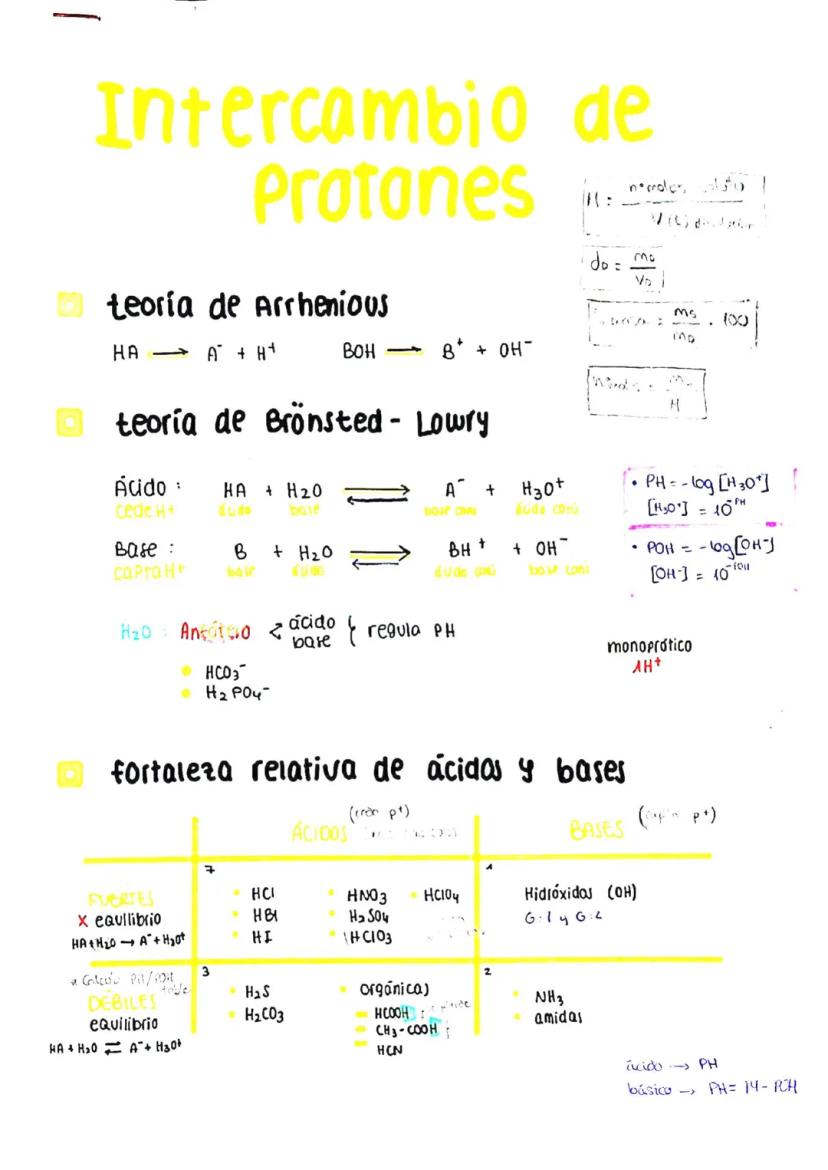 Intercambio de
Protones
M = nº moles
V (L) disolución
dD = mD
VD
mS . 100
mD
M
teoría de Arrhenious
HA → A⁻ + H⁺ BOH → B⁺ + OH⁻
teoría de Brönsted - Lowry
Ácido : HA + H2O ⇌ A⁻ + H3O⁺
cede H+ ácido base base conj ácido conj
Base : B + H2O ⇌ BH⁺ + OH⁻
capta H+ base ácido ácido conj base conj
• PH = -log [H3O⁺]
[H3O⁺] = 10⁻ᴾᴴ
• POH = -log[OH⁻]
[OH⁻] = 10⁻ᴾᴼᴴ
H2O : Anfótero < ácido base } regula PH
HCO3⁻
H2PO4⁻
monoprótico
1H⁺
fortaleza relativa de ácidos y bases
ÁCIDOS (ceden p⁺)
BASES (captan p⁺)
FUERTES
X equilibrio
HA+H2O → A⁻+H3O⁺
7
HCl HNO3 HClO4
HBr H2SO4
HI HClO3
1
Hidróxidos (OH)
G:1 y G:2
* Calcula PH/POH
DÉBILES
equilibrio
HA + H2O ⇌ A⁻+ H3O⁺
3
H2S orgánicas
H2CO3 HCOOH
CH3-COOH
HCN
2
NH3
amidas
ácido → PH
básico → PH = 14 - POH